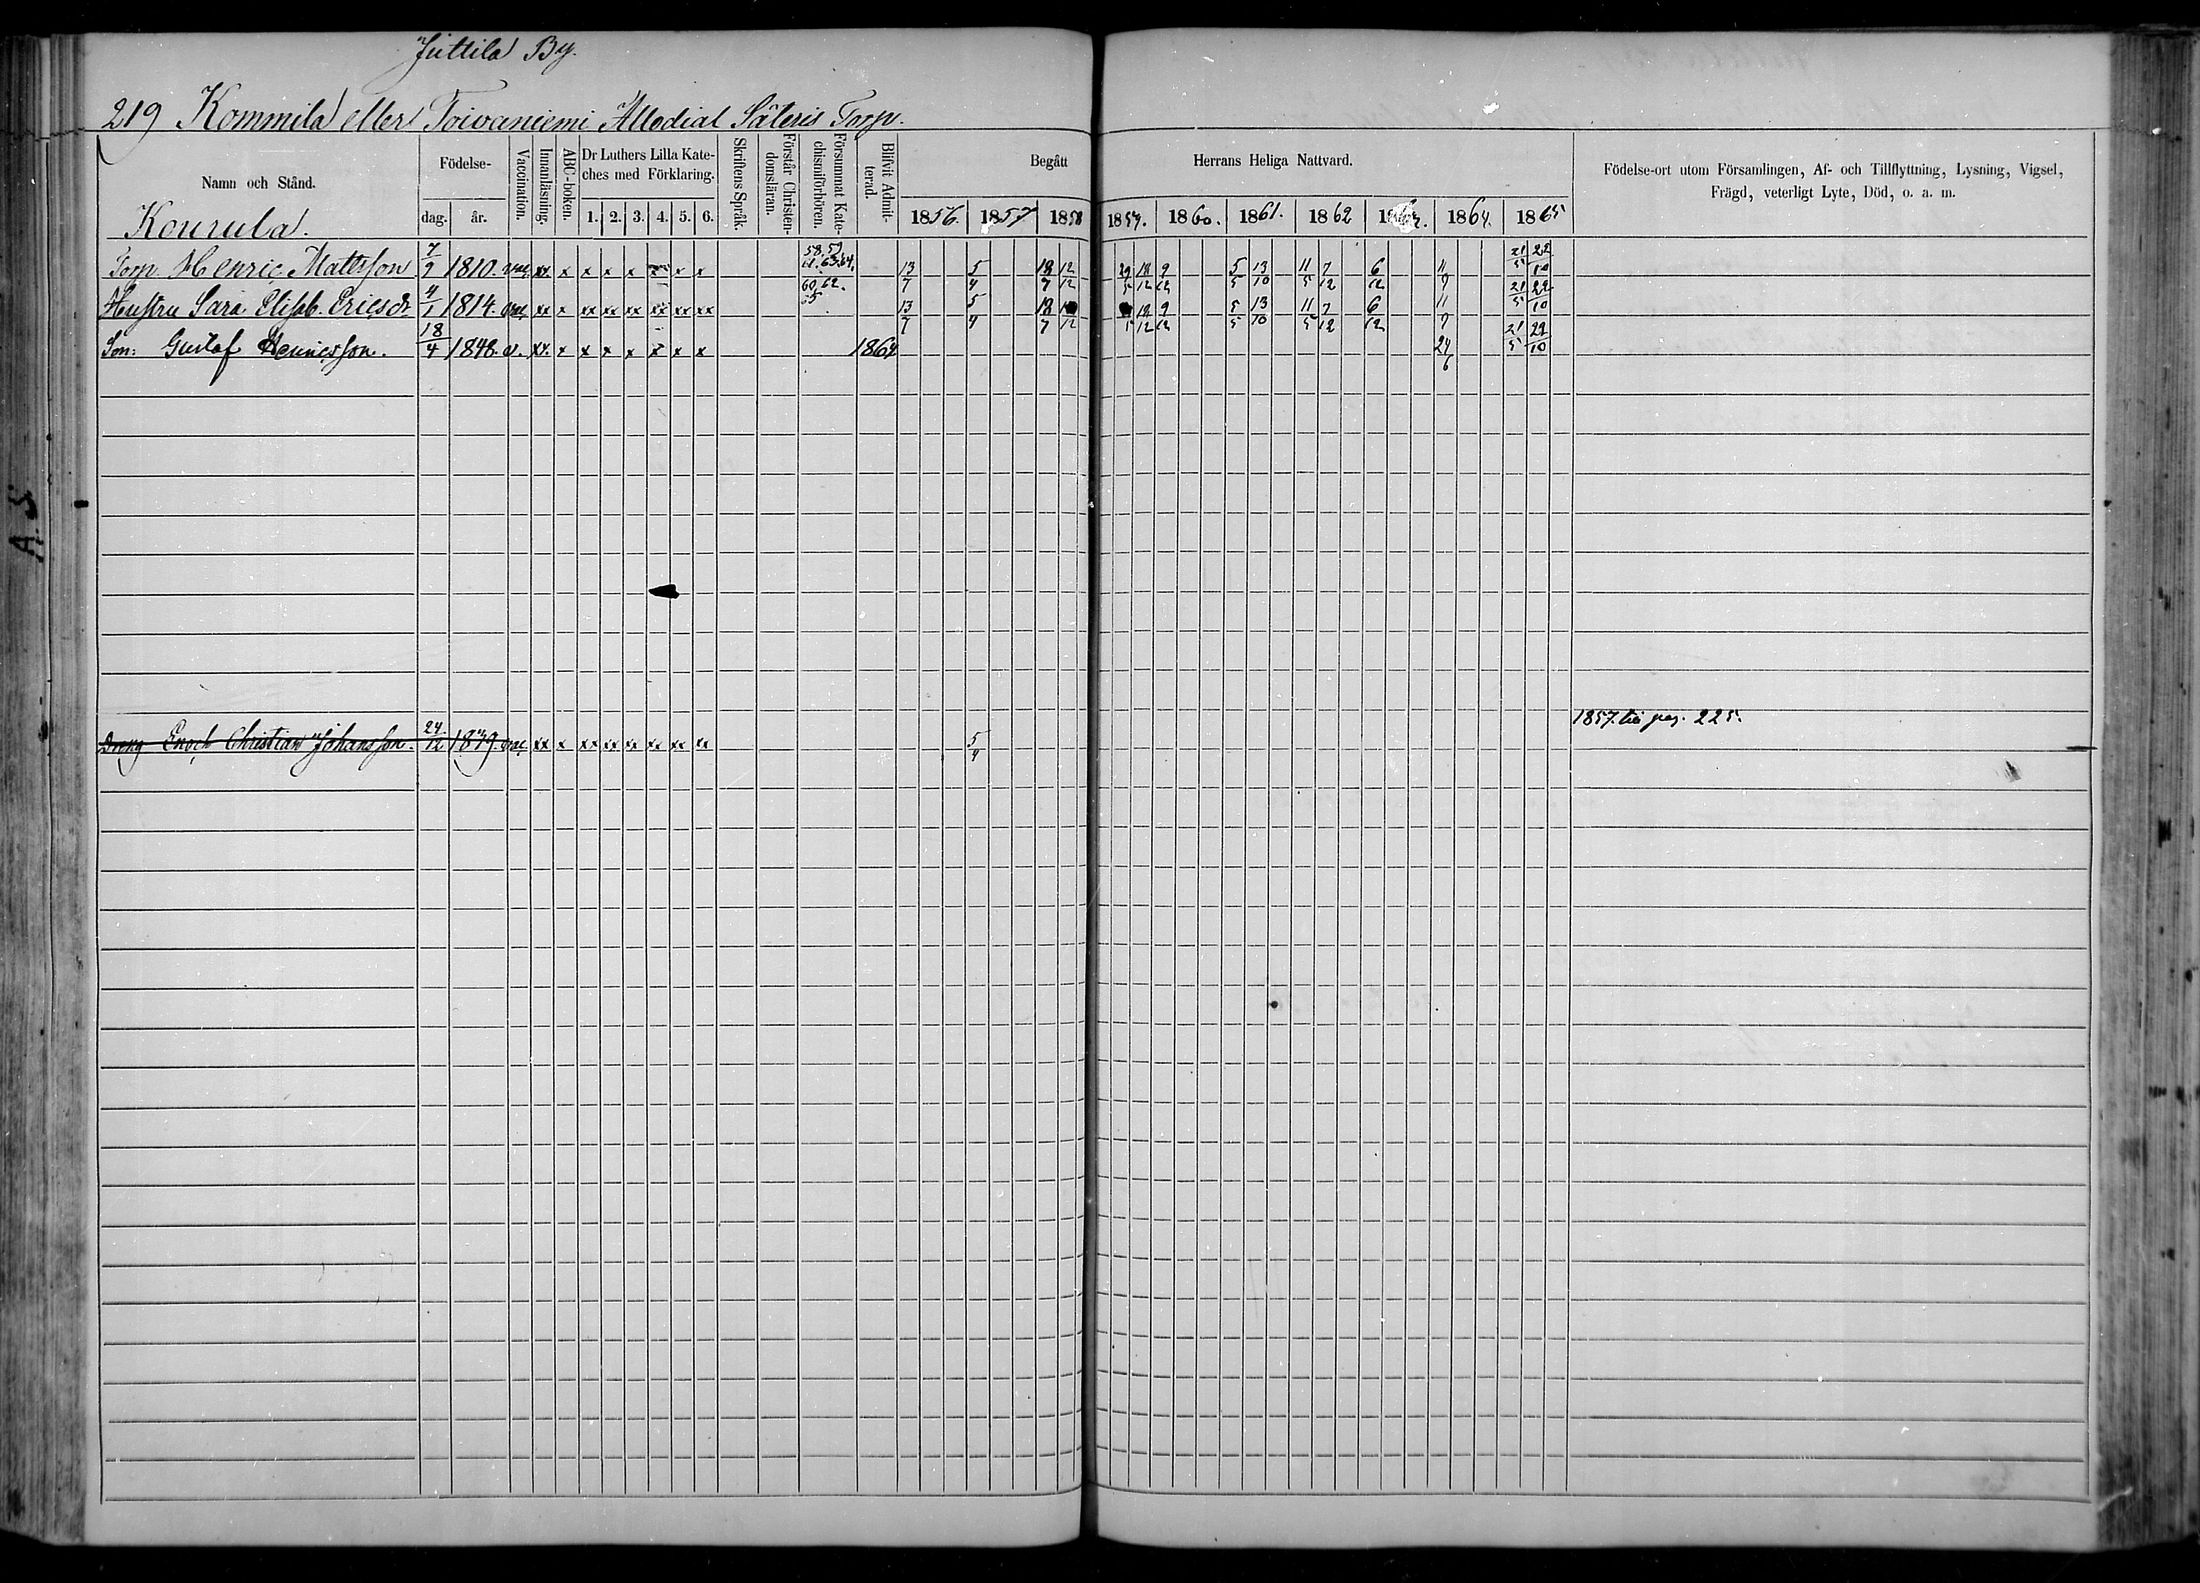 Juttila By.
219 Kommila eller Toivaniemi Allodial Säteris Torp.
Namn och Stånd.
Födelse-
dag. år.
Vaccination.
Innanläsning.
ABC-boken.
Dr Luthers Lilla Kate-
ches med Förklaring.
1. 2. 3. 4. 5. 6.
Skriftens Språk.
Förstår Christen-
domsläran.
Försummat Kate-
chismiförhören.
Blifvit Admit-
terad.
Begått Herrans Heliga Nattvard.
1856. 1857. 1858 1859. 1860. 1861. 1862 1863. 1864. 1865
Födelse-ort utom Församlingen, Af- och Tillflyttning, Lysning, Vigsel,
Frägd, veterligt Lyte, Död, o. a. m.
Kourula.
Torp. Henric Mattsson 7/9 1810. vac. xx x x x x x x x 58. 59 61. 63. 64. 13/7 5/4 18/7 12/12 29/5 18/12 9/12 5/5 13/10 11/5 7/12 6/12 11/7 21/5 22/10
Hustru Sara Elisab. Ericsdr 4/1 1814. vac. xx x xx xx xx xx xx xx 60. 62. 13/7 5/4 18/7 18/12 9/12 5/5 13/10 11/5 7/12 6/12 11/7 21/5 22/10
Son: Gustaf Henricsson. 18/4 1848. v. xx. x x x x x x x 1864 24/6 21/5 22/10
Dreng Enoch Christian Johansson. 24/12 1839. vac. xx x xx xx xx xx xx xx 5/4 1857. till pag. 225.
A. 5